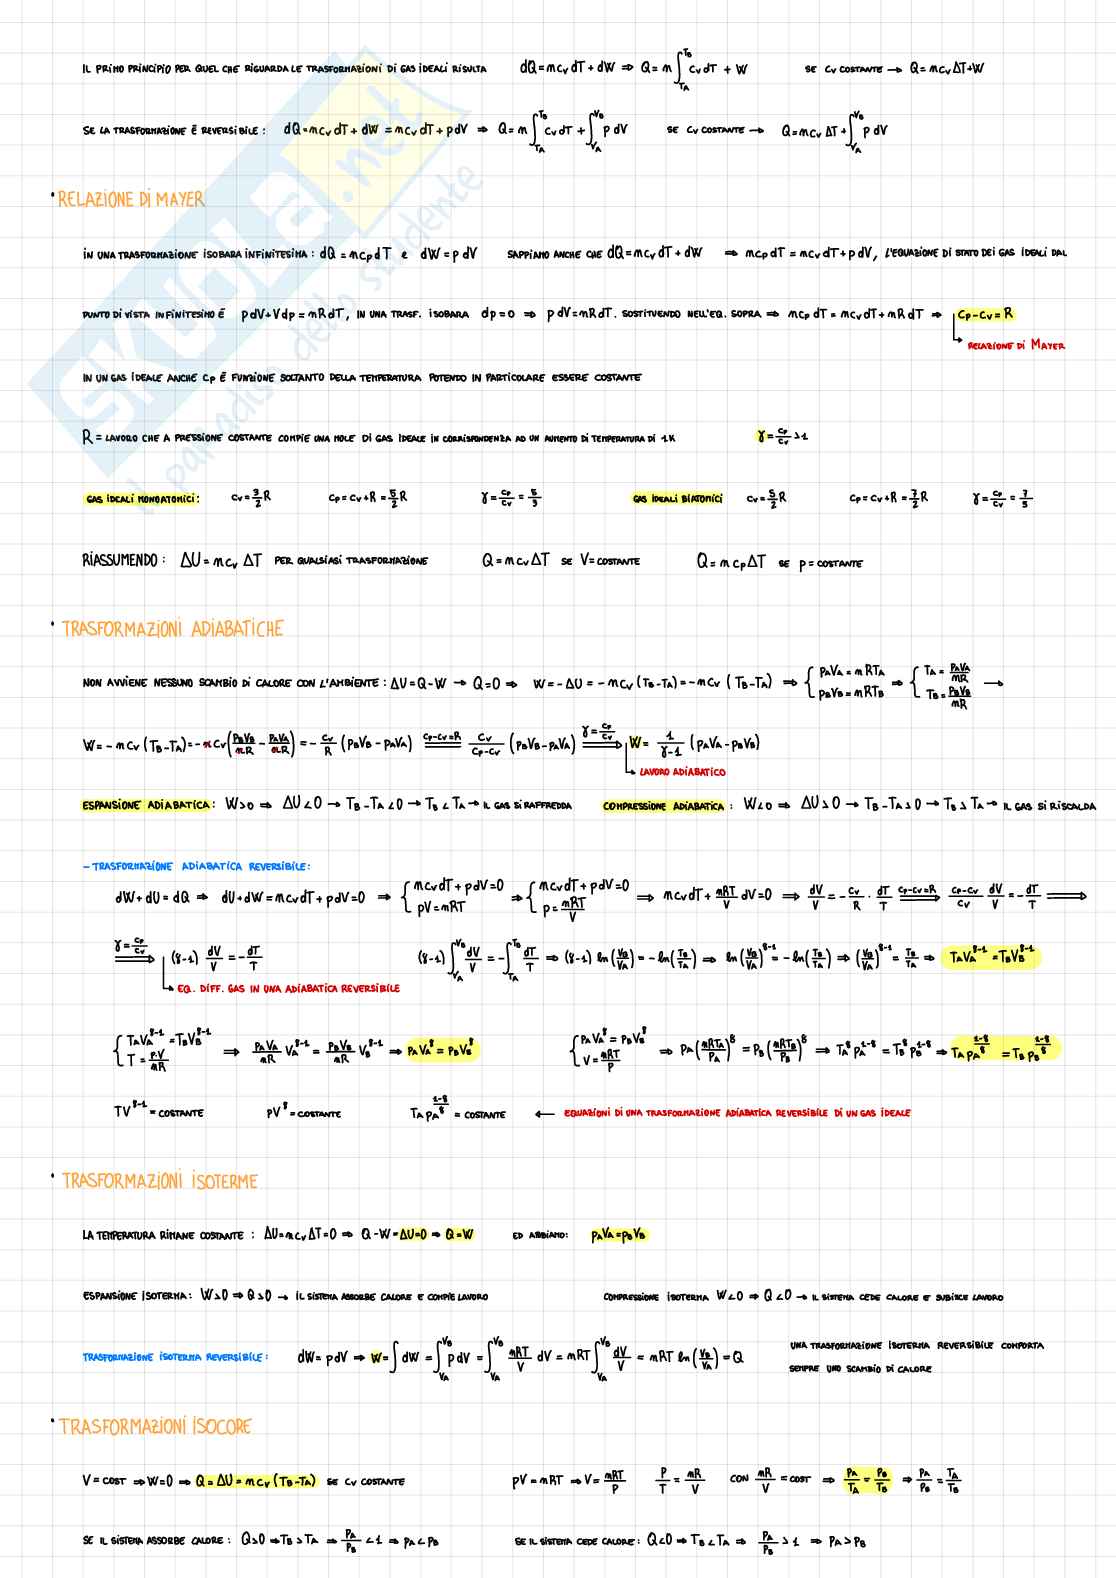 IL PRIMO PRINCIPIO PER QUEL CHE RIGUARDA LE TRASFORMAZIONI DI GAS IDEALI RISULTA dQ = mcv dT + dW ⇒ Q = m∫_{TA}^{TB} cv dT + W SE cv COSTANTE → Q = mcv ΔT + W
SE LA TRASFORMAZIONE É REVERSIBILE: dQ = mcv dT + dW = mcv dT + p dV ⇒ Q = m∫_{TA}^{TB} cv dT + ∫_{VA}^{VB} p dV SE cv COSTANTE → Q = mcv ΔT + ∫_{VA}^{VB} p dV
• RELAZIONE DI MAYER
IN UNA TRASFORMAZIONE ISOBARA INFINITESIMA: dQ = mcp dT e dW = p dV SAPPIAMO ANCHE CHE dQ = mcv dT + dW ⇒ mcp dT = mcv dT + p dV, L'EQUAZIONE DI STATO DEI GAS IDEALI DAL
PUNTO DI VISTA INFINITESIMO É p dV + V dp = mR dT, IN UNA TRASF. ISOBARA dp = 0 ⇒ p dV = mR dT. SOSTITUENDO NELL'EQ. SOPRA ⇒ mcp dT = mcv dT + mR dT ⇒ cp - cv = R
RELAZIONE DI MAYER
IN UN GAS IDEALE ANCHE cp É FUNZIONE SOLTANTO DELLA TEMPERATURA POTENDO IN PARTICOLARE ESSERE COSTANTE
R = LAVORO CHE A PRESSIONE COSTANTE COMPIE UNA MOLE DI GAS IDEALE IN CORRISPONDENZA AD UN AUMENTO DI TEMPERATURA DI 1K γ = cp/cv > 1
GAS IDEALI MONOATOMICI: cv = 3/2 R cp = cv + R = 5/2 R γ = cp/cv = 5/3 GAS IDEALI BIATOMICI cv = 5/2 R cp = cv + R = 7/2 R γ = cp/cv = 7/5
RIASSUMENDO: ΔU = mcv ΔT PER QUALSIASI TRASFORMAZIONE Q = mcv ΔT SE V = COSTANTE Q = mcp ΔT SE p = COSTANTE
• TRASFORMAZIONI ADIABATICHE
NON AVVIENE NESSUNO SCAMBIO DI CALORE CON L'AMBIENTE: ΔU = Q - W → Q = 0 ⇒ W = -ΔU = -mcv (TB - TA) = -mcv (TB - TA) ⇒ { pAVA = mRTA pBVB = mRTB ⇒ { TA = pAVA/mR TB = pBVB/mR →
W = -mcv (TB - TA) = -mcv (pBVB/mR - pAVA/mR) = -cv/R (pBVB - pAVA) =(cp-cv=R)= cv/(cp-cv) (pBVB - pAVA) =(γ=cp/cv)⇒ W = 1/(γ-1) (pAVA - pBVB)
LAVORO ADIABATICO
ESPANSIONE ADIABATICA: W > 0 ⇒ ΔU < 0 → TB - TA < 0 → TB < TA → IL GAS SI RAFFREDDA COMPRESSIONE ADIABATICA: W < 0 ⇒ ΔU > 0 → TB - TA > 0 → TB > TA → IL GAS SI RISCALDA
- TRASFORMAZIONE ADIABATICA REVERSIBILE:
dW + dU = dQ ⇒ dU + dW = mcv dT + p dV = 0 ⇒ { mcv dT + p dV = 0 pV = mRT ⇒ { mcv dT + p dV = 0 p = mRT/V ⇒ mcv dT + mRT/V dV = 0 ⇒ dV/V = -cv/R · dT/T =(cp-cv=R)⇒ (cp-cv)/cv dV/V = -dT/T ⇒
γ = cp/cv ⇒ (γ-1) dV/V = -dT/T (γ-1)∫_{VA}^{VB} dV/V = -∫_{TA}^{TB} dT/T ⇒ (γ-1) ln(VB/VA) = -ln(TB/TA) ⇒ ln(VB/VA)^{γ-1} = -ln(TB/TA) ⇒ (VB/VA)^{γ-1} = TB/TA ⇒ TAVA^{γ-1} = TBVB^{γ-1}
EQ. DIFF. GAS IN UNA ADIABATICA REVERSIBILE
{ TAVA^{γ-1} = TBVB^{γ-1} T = p·V/mR ⇒ pAVA/mR VA^{γ-1} = pBVB/mR VB^{γ-1} ⇒ pAVA^γ = pBVB^γ { pAVA^γ = pBVB^γ V = mRT/p ⇒ pA(mRTA/pA)^γ = pB(mRTB/pB)^γ ⇒ TA^γ pA^{1-γ} = TB^γ pB^{1-γ} ⇒ TA pA^{(1-γ)/γ} = TB pB^{(1-γ)/γ}
TV^{γ-1} = COSTANTE pV^γ = COSTANTE TA pA^{(1-γ)/γ} = COSTANTE ← EQUAZIONI DI UNA TRASFORMAZIONE ADIABATICA REVERSIBILE DI UN GAS IDEALE
• TRASFORMAZIONI ISOTERME
LA TEMPERATURA RIMANE COSTANTE: ΔU = mcv ΔT = 0 ⇒ Q - W = ΔU = 0 ⇒ Q = W ED ABBIAMO: pAVA = pBVB
ESPANSIONE ISOTERMA: W > 0 ⇒ Q > 0 → IL SISTEMA ASSORBE CALORE E COMPIE LAVORO COMPRESSIONE ISOTERMA W < 0 ⇒ Q < 0 → IL SISTEMA CEDE CALORE E SUBISCE LAVORO
TRASFORMAZIONE ISOTERMA REVERSIBILE: dW = p dV ⇒ W = ∫ dW = ∫_{VA}^{VB} p dV = ∫_{VA}^{VB} mRT/V dV = mRT ∫_{VA}^{VB} dV/V = mRT ln(VB/VA) = Q UNA TRASFORMAZIONE ISOTERMA REVERSIBILE COMPORTA
SEMPRE UNO SCAMBIO DI CALORE
• TRASFORMAZIONI ISOCORE
V = COST ⇒ W = 0 ⇒ Q = ΔU = mcv (TB - TA) SE cv COSTANTE pV = mRT ⇒ V = mRT/p p/T = mR/V CON mR/V = COST ⇒ pA/TA = pB/TB ⇒ pA/pB = TA/TB
SE IL SISTEMA ASSORBE CALORE: Q > 0 ⇒ TB > TA ⇒ pA/pB < 1 ⇒ pA < pB SE IL SISTEMA CEDE CALORE: Q < 0 ⇒ TB < TA ⇒ pA/pB > 1 ⇒ pA > pB
SKUOLA.net
il paradiso dello studente